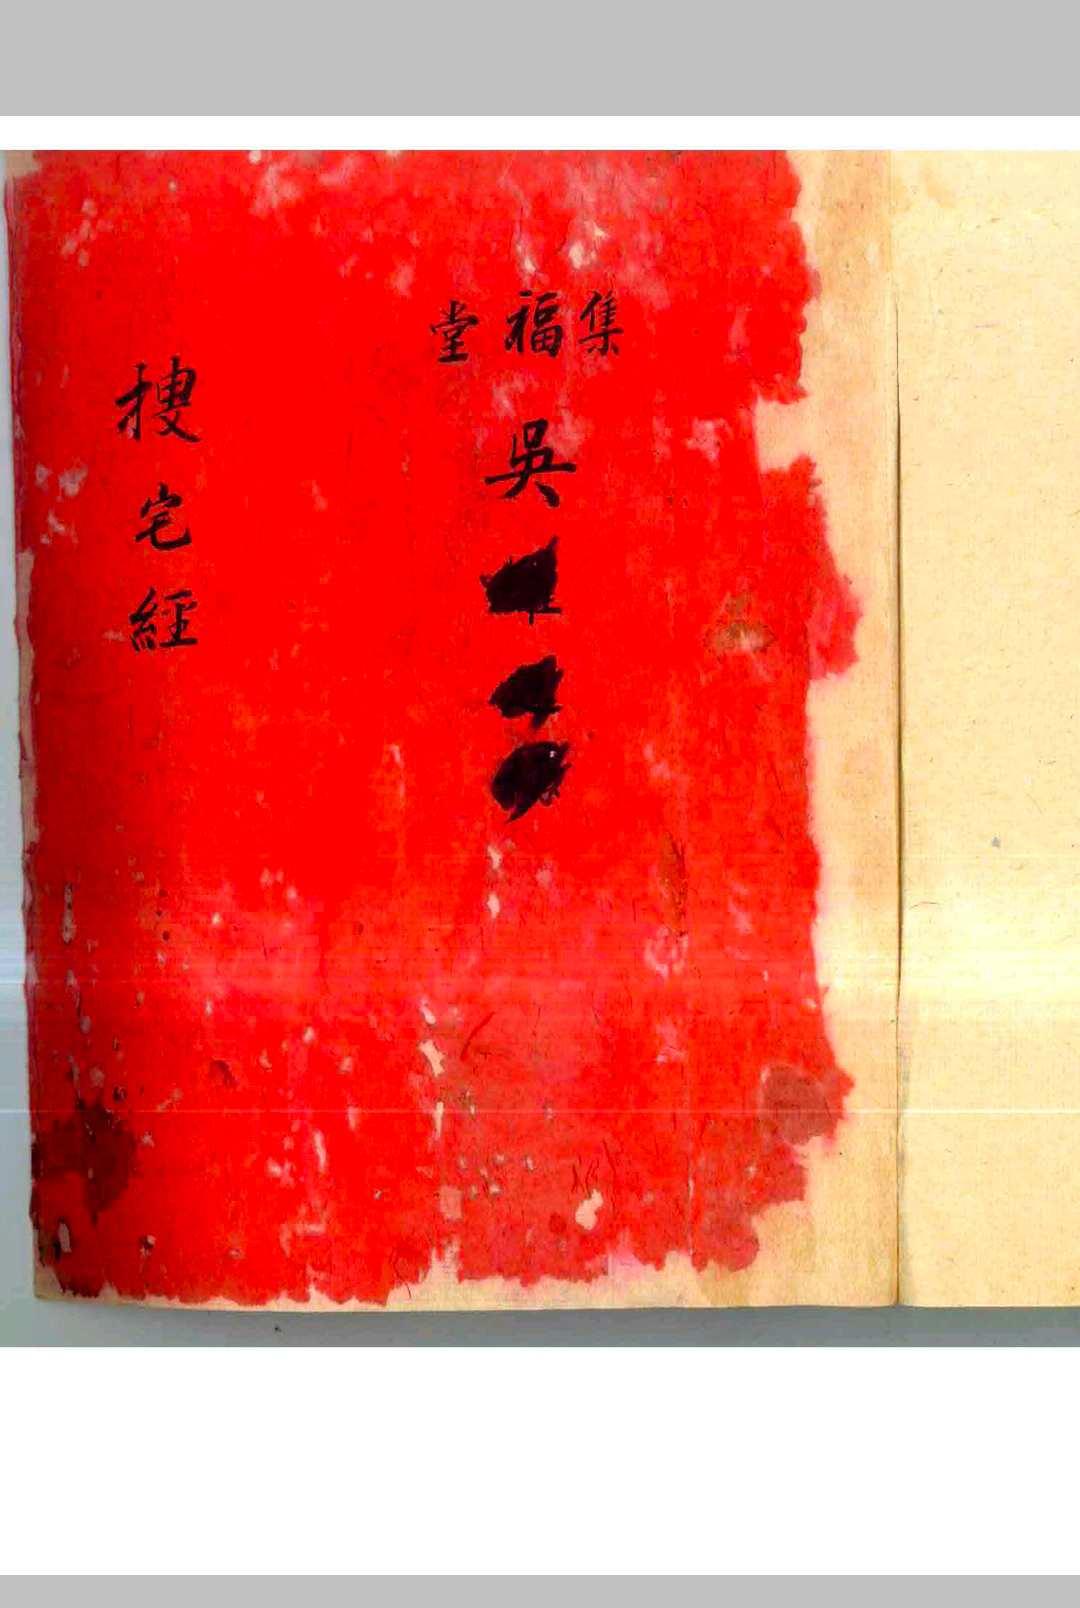 集福堂
吳
搜宅經